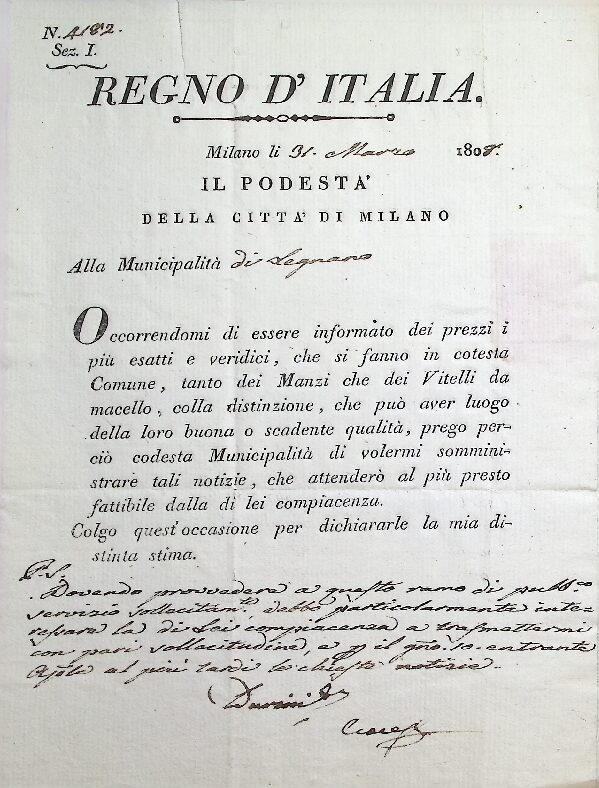 N. 4182.
Sez. I.
REGNO D' ITALIA.
Milano li 31. Marzo 1808.
IL PODESTA'
DELLA CITTA' DI MILANO
Alla Municipalità di Legnano
Occorrendomi di essere informato dei prezzi i
più esatti e veridici, che si fanno in cotesta
Comune, tanto dei Manzi che dei Vitelli da
macello, colla distinzione, che può aver luogo
della loro buona o scadente qualità, prego per-
ciò codesta Municipalità di volermi sommini-
strare tali notizie, che attenderò al più presto
fattibile dalla di lei compiacenza.
Colgo quest'occasione per dichiararle la mia di-
stinta stima.
P.S.
Dovendo provvedere a questo ramo di pubb.co
servizio sollecitam.te debbo particolarmente inte-
ressare la di Lei compiacenza a trasmettermi
con pari sollecitudine, a il gno. 10. entrante
Aple al più tardi le chieste notizie.
Durini